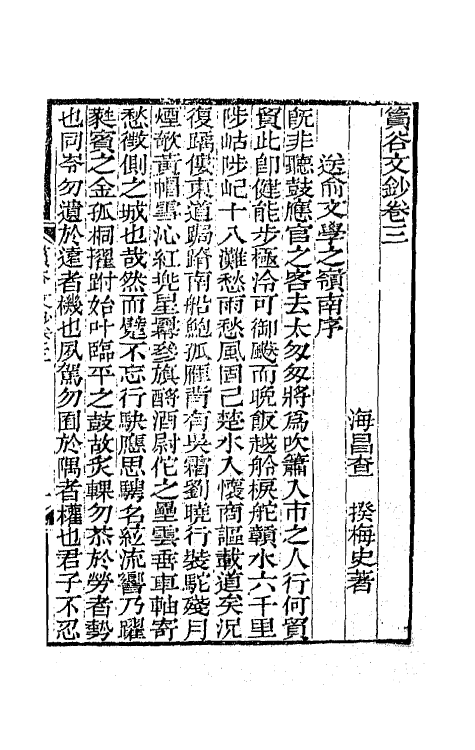 篔谷文鈔卷三
海昌查　揆梅史著
送俞文學之嶺南序
旣非聽鼓應官之客去太匆匆將爲吹簫入市之人行何貿
貿此卽健能步極泠可御颷而晚飯越船棙舵贛水六千里
陟岵陟屺十八灘愁雨愁風固已楚水入懷商謳載道矣况
復踽僂東道跼蹐南船鮑孤雁苦有吳霜劉曉行裝駝殘月
煙欹黃帽雪沁紅兜星幕參旗酹酒尉佗之壘雲垂車軸寄
愁徵側之城也哉然而躄不忘行駃應思騁名竝流響乃躍
蕤賓之金孤桐擢跗始叶臨平之鼓故炙輠勿恭於勞者勢
也同岑勿遺於遠者機也夙駕勿囿於隅者權也君子不忍